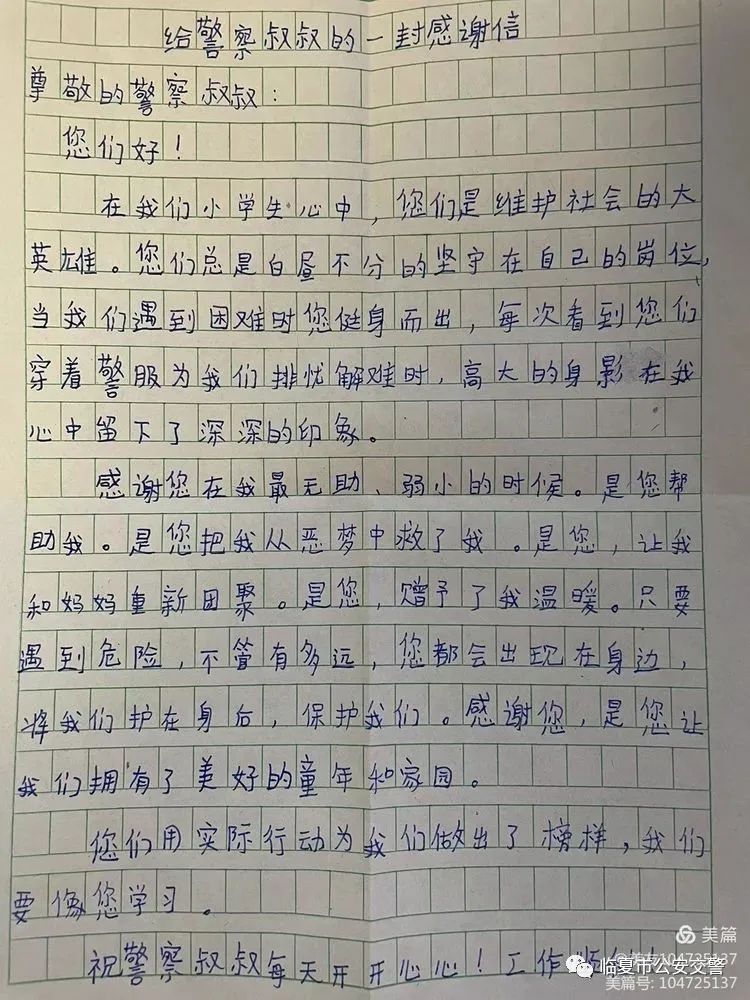 给警察叔叔的一封感谢信
尊敬的警察叔叔：
您们好！
在我们小学生心中，您们是维护社会的大
英雄。您们总是白昼不分的坚守在自己的岗位，
当我们遇到困难时您挺身而出，每次看到您们
穿着警服为我们排忧解难时，高大的身影在我
心中留下了深深的印象。
感谢您在我最无助、弱小的时候。是您帮
助我。是您把我从恶梦中救了我。是您，让我
和妈妈重新团聚。是您，赠予了我温暖。只要
遇到危险，不管有多远，您都会出现在身边，
将我们护在身后，保护我们。感谢您，是您让
我们拥有了美好的童年和家园。
您们用实际行动为我们做出了榜样，我们
要像您学习。
祝警察叔叔每天开开心心！工作顺
美篇
临夏市公安交警
美篇号: 104725137